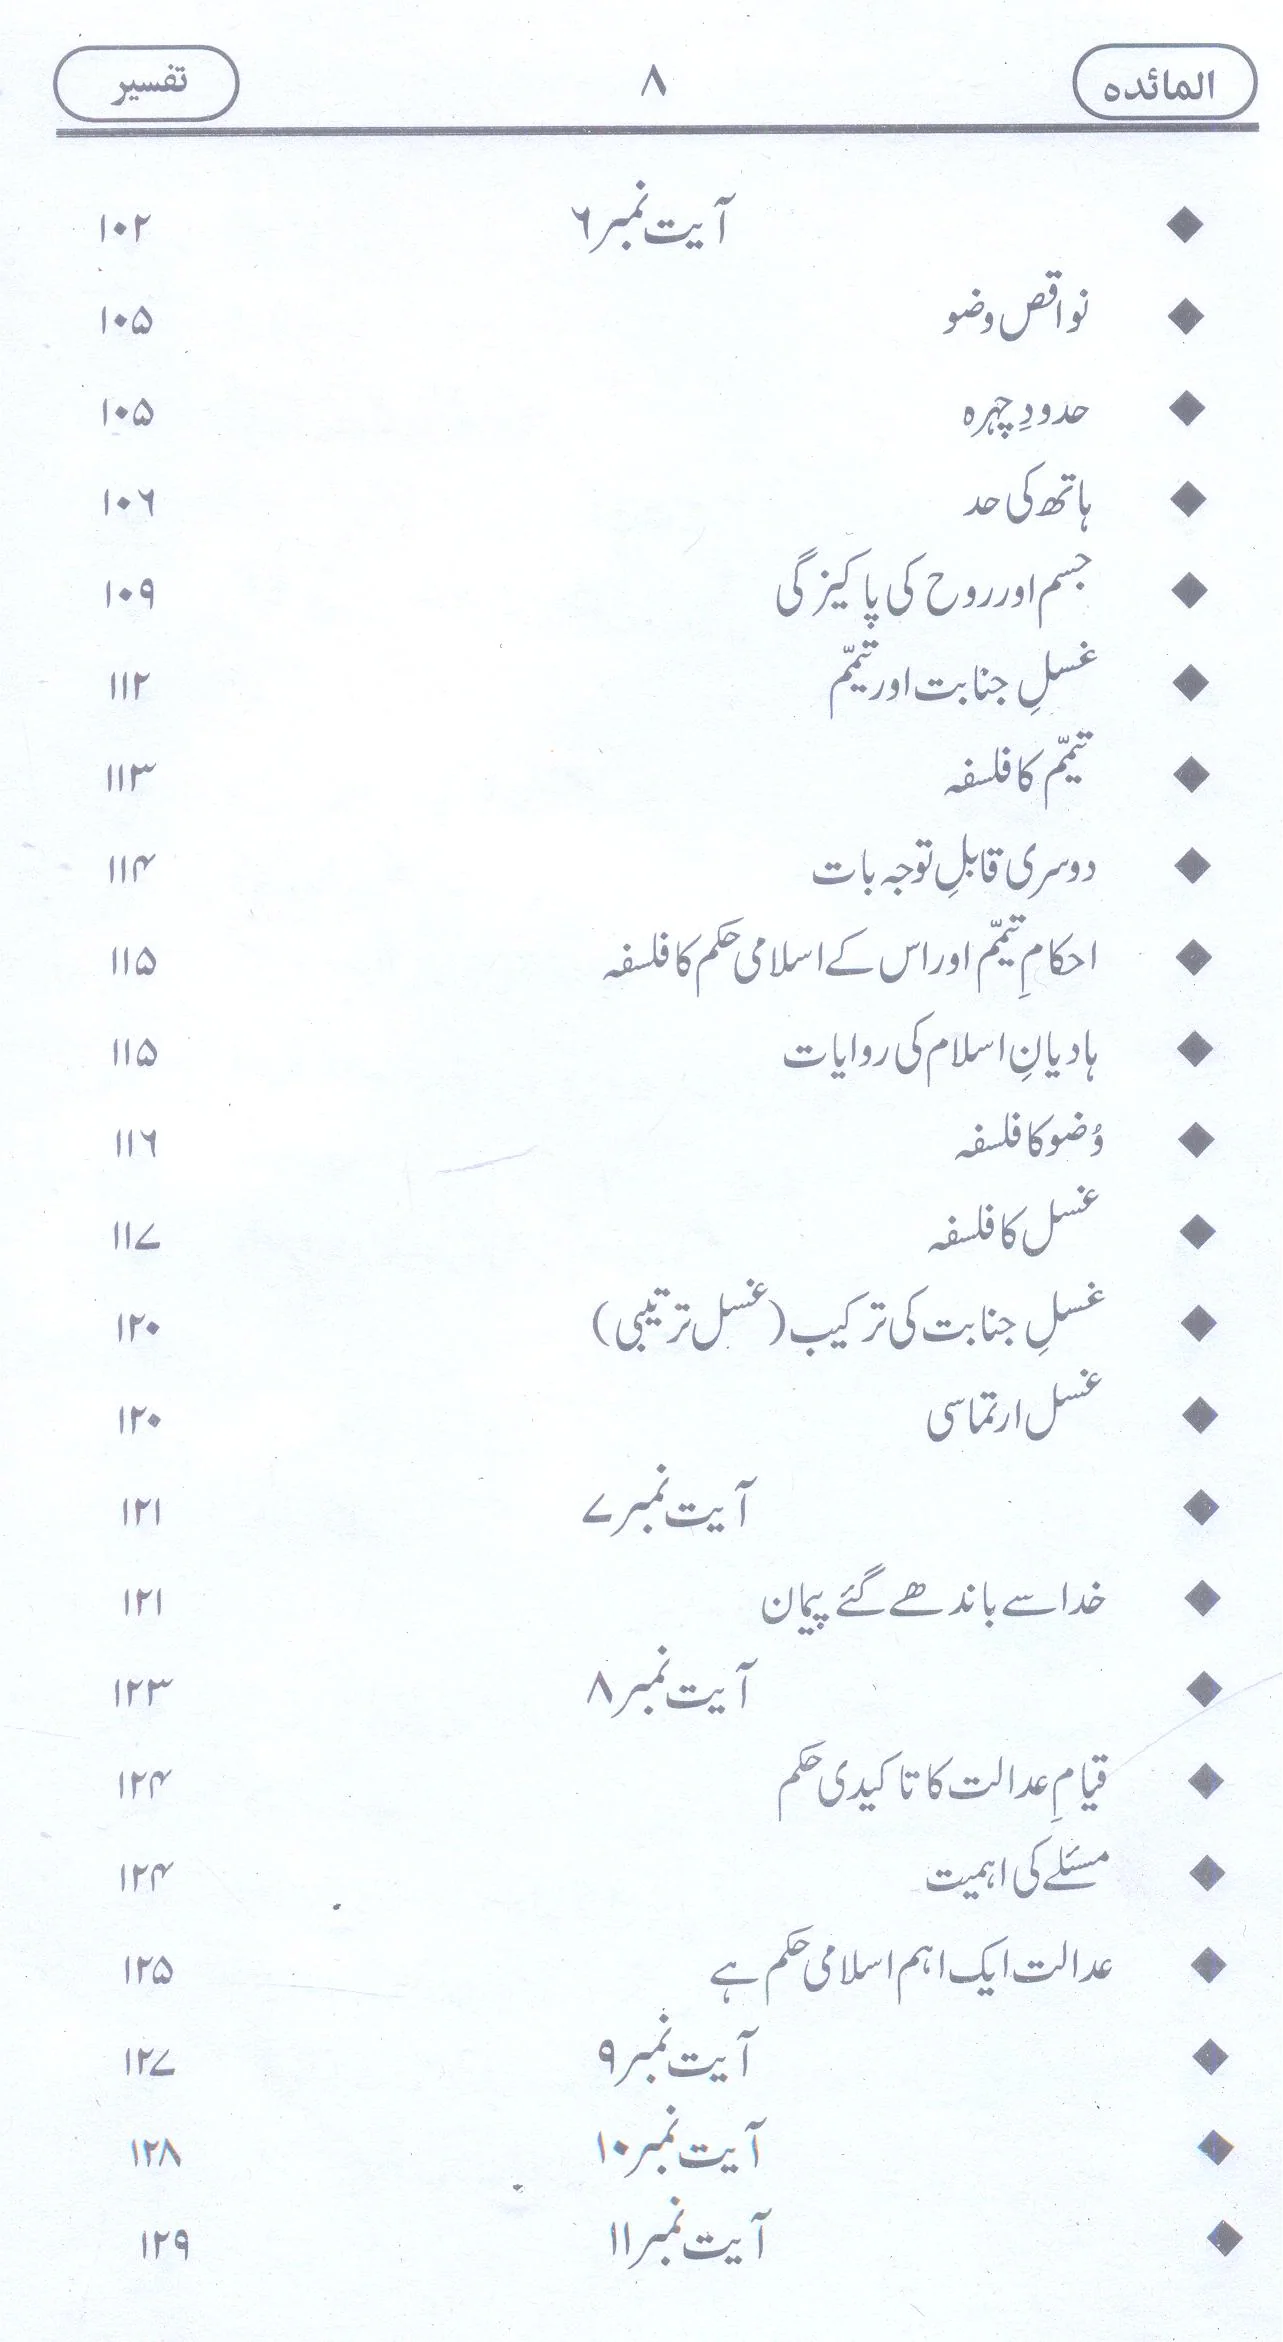 المائدہ ۸ تفسیر
آیت نمبر ۶ ۱۰۲
نواقص وضو ۱۰۵
حدودِ چہرہ ۱۰۵
ہاتھ کی حد ۱۰۶
جسم اور روح کی پاکیزگی ۱۰۹
غسلِ جنابت اور تیمّم ۱۱۲
تیمّم کا فلسفہ ۱۱۳
دوسری قابلِ توجہ بات ۱۱۴
احکامِ تیمّم اور اس کے اسلامی حکم کا فلسفہ ۱۱۵
ہادیانِ اسلام کی روایات ۱۱۵
وُضو کا فلسفہ ۱۱۶
غسل کا فلسفہ ۱۱۷
غسلِ جنابت کی ترکیب (غسل ترتیبی) ۱۲۰
غسل ارتماسی ۱۲۰
آیت نمبر ۷ ۱۲۱
خدا سے باندھے گئے پیمان ۱۲۱
آیت نمبر ۸ ۱۲۳
قیامِ عدالت کا تاکیدی حکم ۱۲۴
مسئلے کی اہمیت ۱۲۴
عدالت ایک اہم اسلامی حکم ہے ۱۲۵
آیت نمبر ۹ ۱۲۷
آیت نمبر ۱۰ ۱۲۸
آیت نمبر ۱۱ ۱۲۹